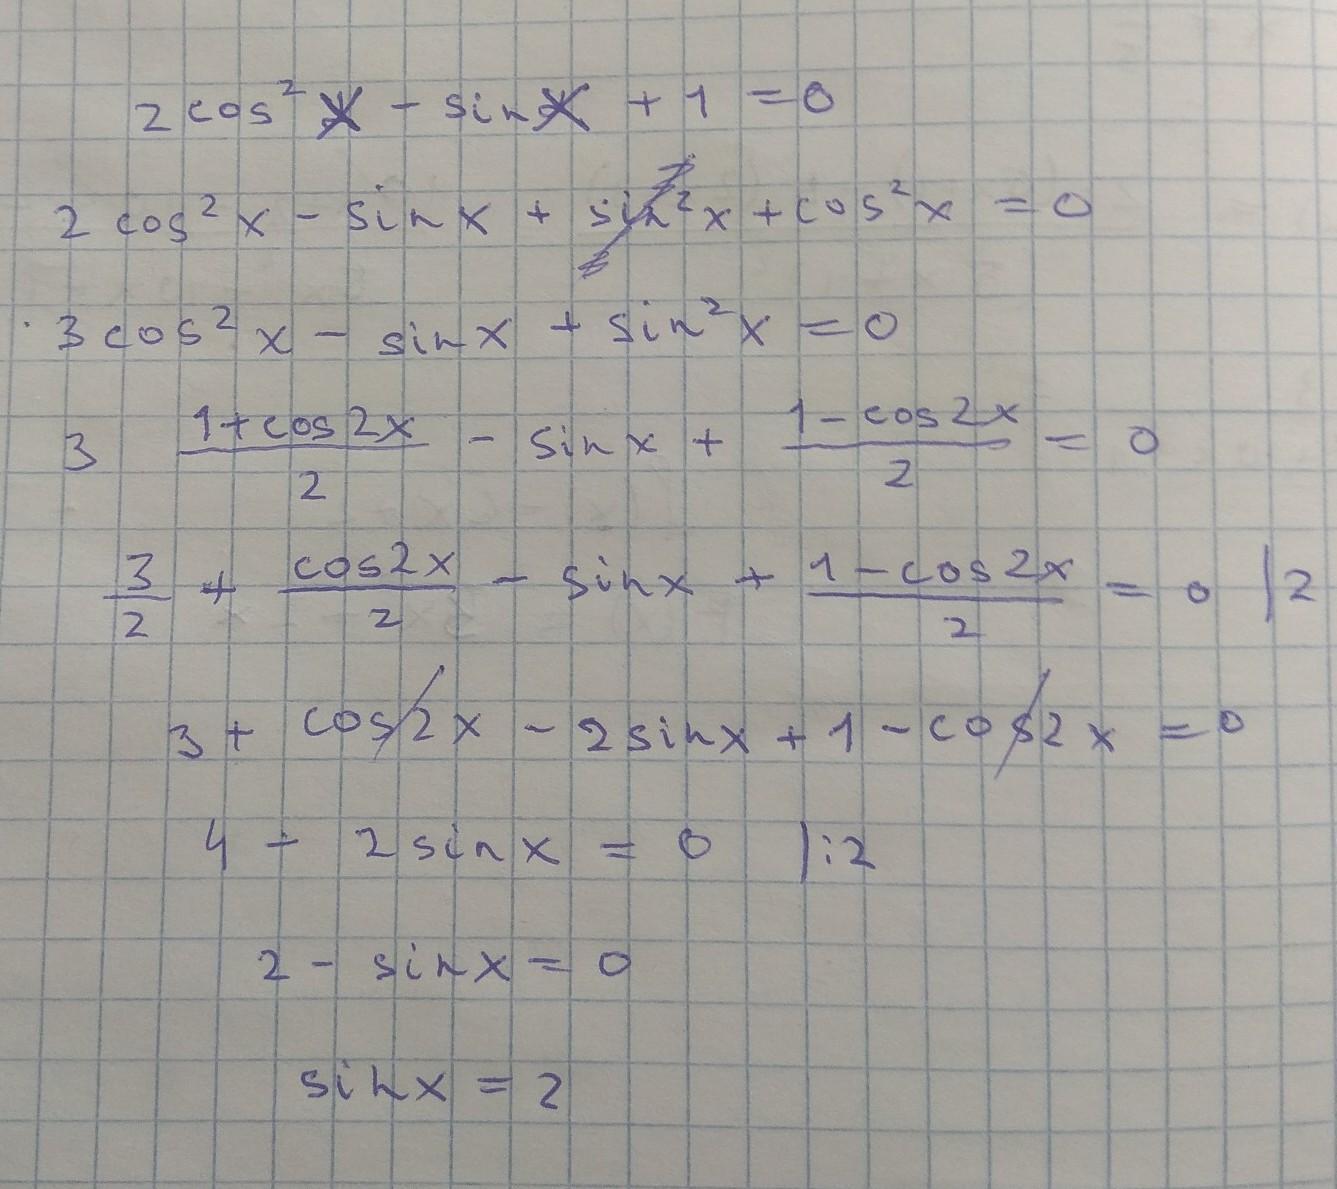 2 cos² x - sin x + 1 = 0
2 cos² x - sin x + sin² x + cos² x = 0
3 cos² x - sin x + sin² x = 0
3 (1 + cos 2x)/2 - sin x + (1 - cos 2x)/2 = 0
3/2 + cos 2x/2 - sin x + (1 - cos 2x)/2 = 0 | 2
3 + cos 2x - 2 sin x + 1 - cos 2x = 0
4 - 2 sin x = 0 | : 2
2 - sin x = 0
sin x = 2